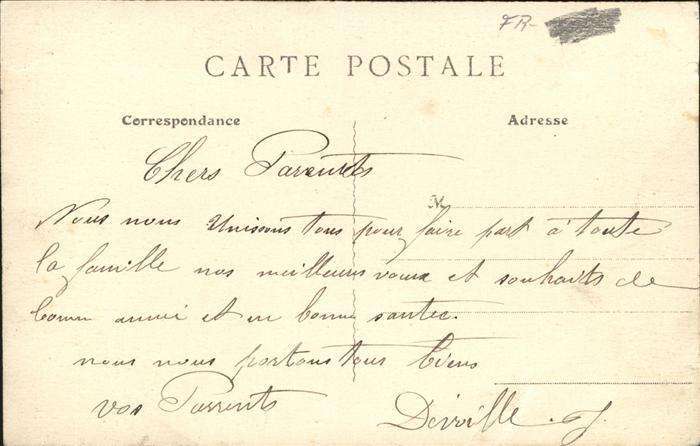 FR-
CARTE POSTALE
Correspondance
Adresse
Chers Parents
M
Nous nous Unissons tous pour faire part à toute
la famille nos meilleurs vœux et souhaits de
bonn anné et en bonne santee.
nous nous portons tous biens
vos Parrents Derville. J